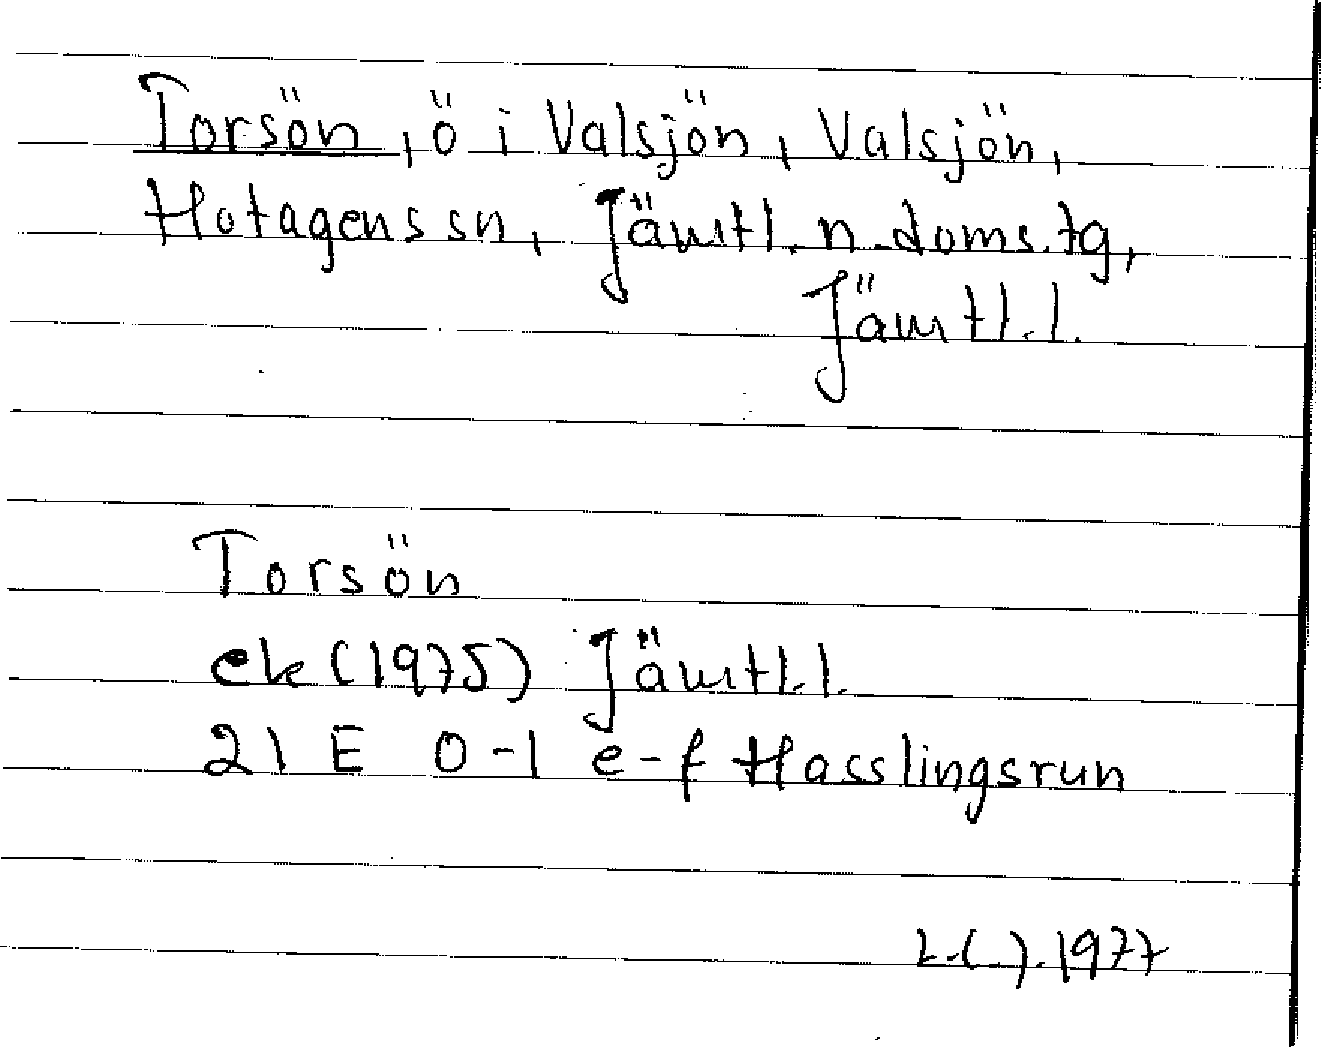 Torsön, ö i Valsjön, Valsjön,
Hotagens sn, Jämtl. n. doms.tg,
Jämtl. l.
Torsön
ek (1975) Jämtl. l.
21 E 0-1 e-f Hasslingsrun
1977